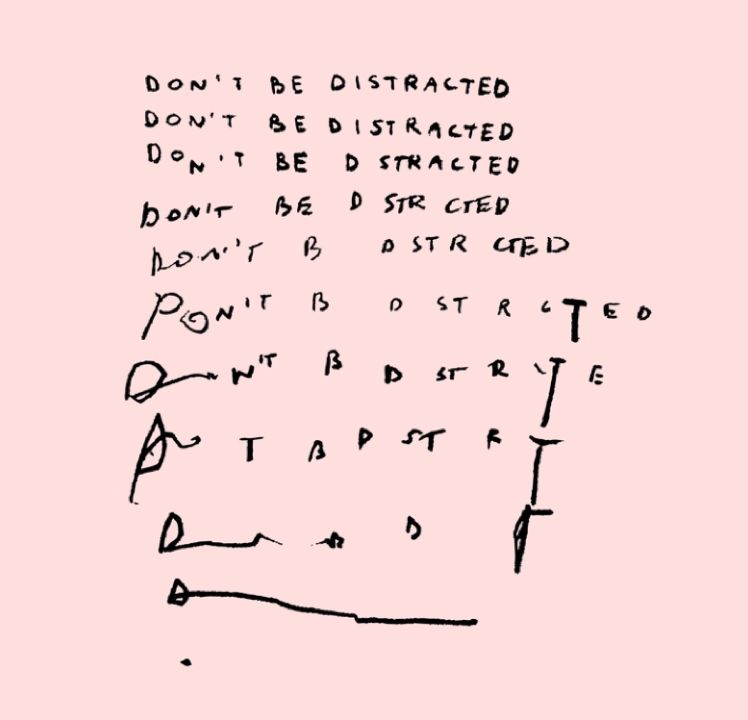 DON'T BE DISTRACTED
DON'T BE DISTRACTED
DON'T BE D STRACTED
DON'T BE D STR CTED
DON'T B D STR CTED
PON'T B D ST R C T E D
N'T B D ST R T E
T B D ST R T
D B D
D